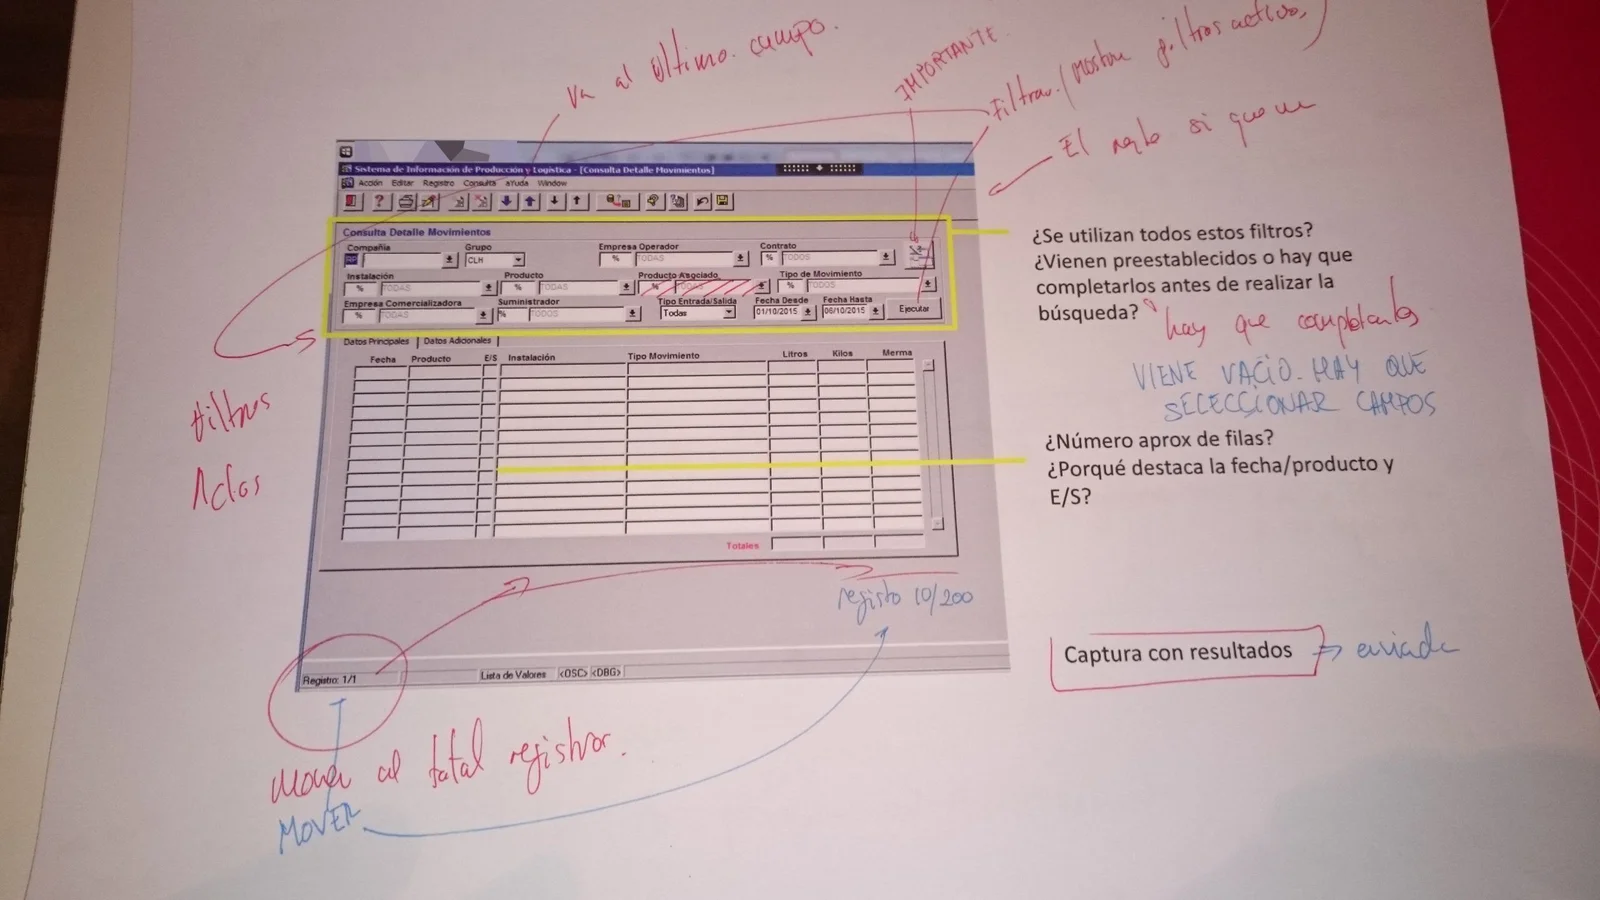 va al último campo.
IMPORTANTE
Filtrar/mostrar filtros activos
El resto si que
Sistema de Información de Producción y Logística - [Consulta Detalle Movimientos]
Acción Editar Registro Consulta aYuda Window
Consulta Detalle Movimientos
Compañía Grupo Empresa Operador Contrato
RP CLH % TODAS % TODOS
Instalación Producto Producto Asociado Tipo de Movimiento
% TODAS % TODAS % TODAS % TODOS
Empresa Comercializadora Suministrador Tipo Entrada/Salida Fecha Desde Fecha Hasta
% TODAS % TODOS Todas 01/10/2015 06/10/2015 Ejecutar
Datos Principales Datos Adicionales
Fecha Producto E/S Instalación Tipo Movimiento Litros Kilos Merma
Totales
Registro: 1/1 Lista de Valores <OSC> <DBG>
¿Se utilizan todos estos filtros?
¿Vienen preestablecidos o hay que
completarlos antes de realizar la
búsqueda?
hay que completarlos
VIENE VACIO. HAY QUE
SELECCIONAR CAMPOS
¿Número aprox de filas?
¿Porqué destaca la fecha/producto y
E/S?
Filtros
registo 10/200
Captura con resultados
enviada
mover al total registros.
MOVER